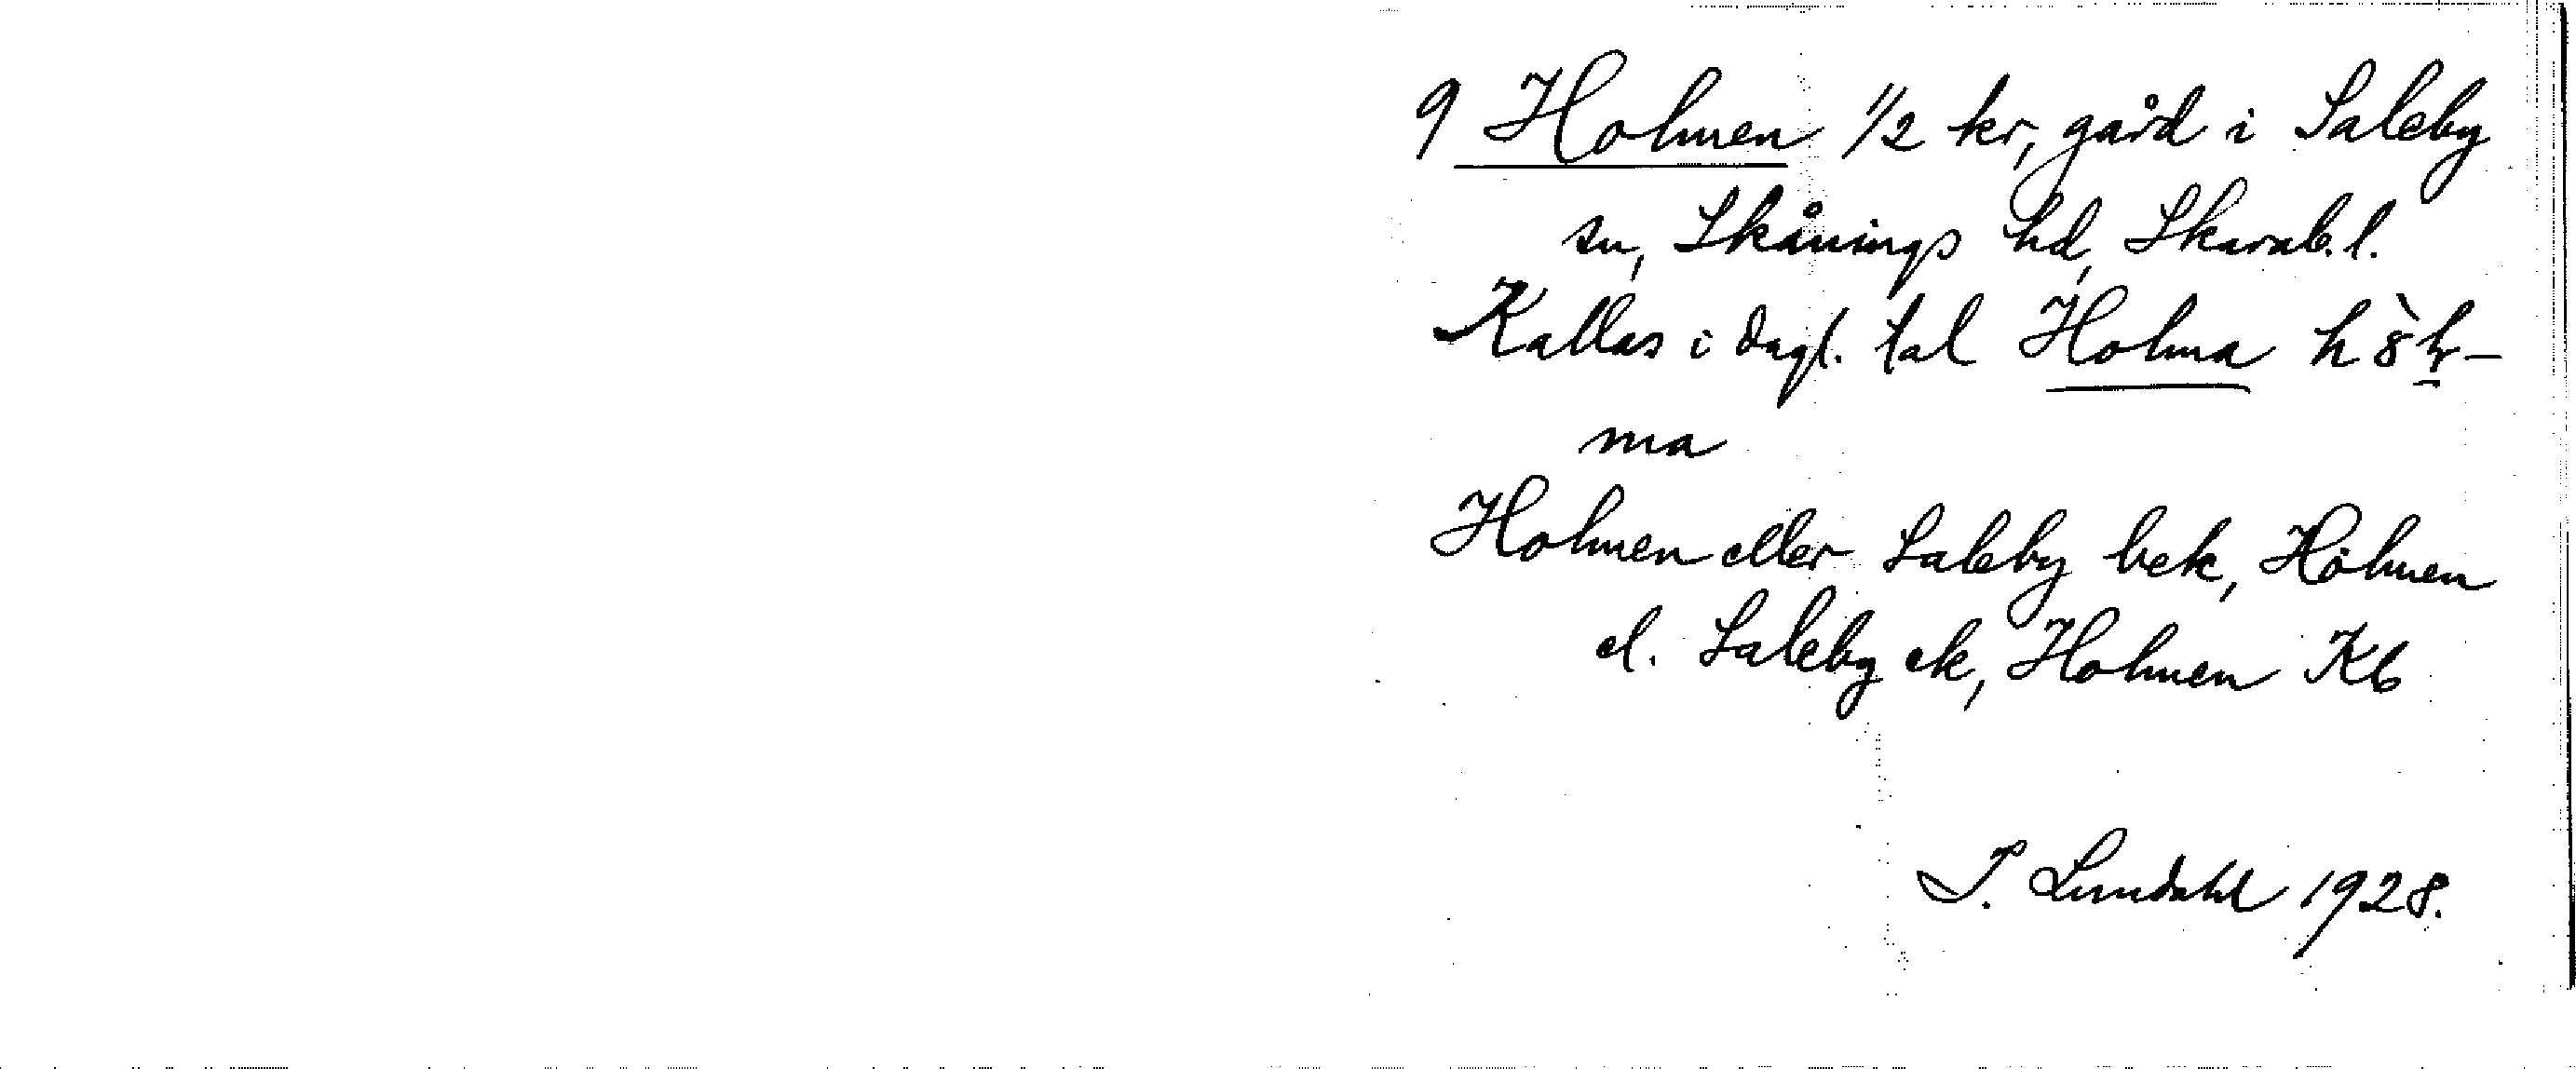 9 Holmen 1/2 kr, gård i Saleby
sn, Skånings hd, Skarab. l.
Kallas i dagl. tal Holma
ma
Holmen eller Saleby bek, Holmen
el. Saleby ek, Holmen Kb
Lundahl 1928.